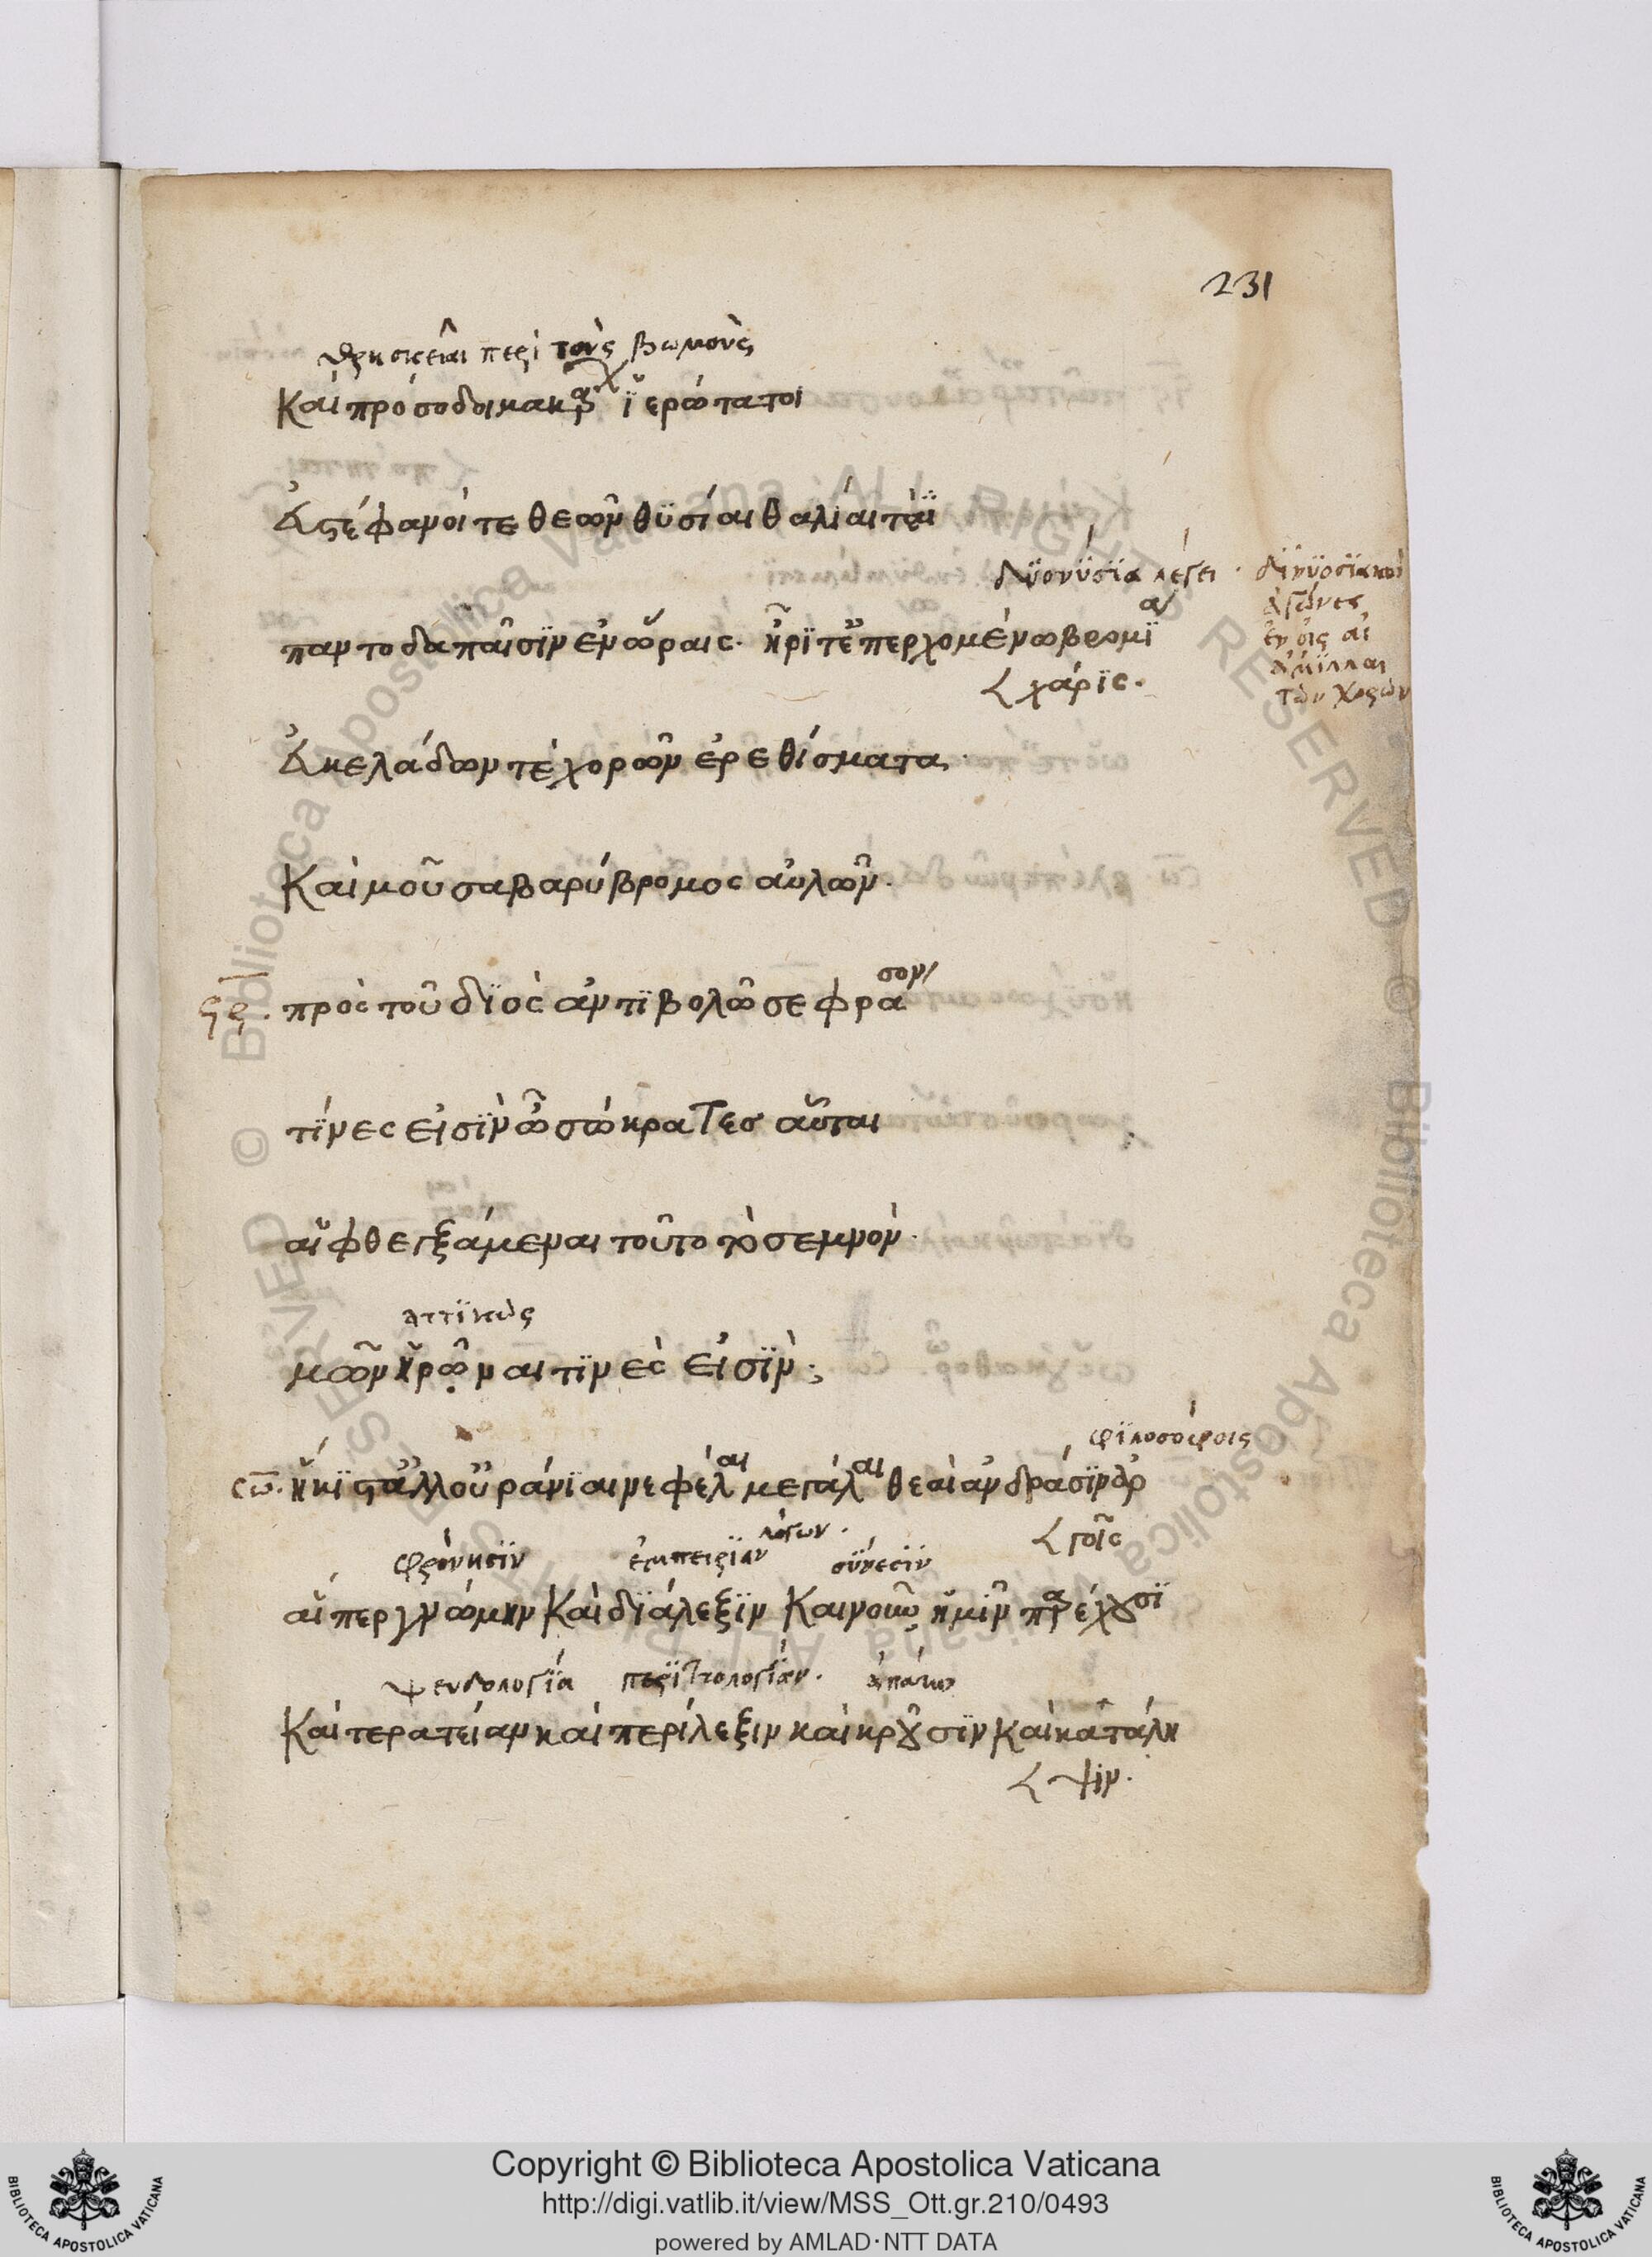 231
θρησκεῖαι περὶ τοὺς βωμοὺς
Καὶ πρόσοδοι μακάρων ἱερώταται
Ἐϋστέφανοί τε θεῶν θυσίαι θαλίαι τε
Διονύσια λέγει · διονυσιακοὶ
ἀγῶνες
ἐν οἷς αἱ
ἅμιλλαι
τῶν χορῶν
παντοδαπαῖσϊν ἐν ὥραις· ἦρί τ' ἐπερχομένω βρομία
χάρϊς.
Ἐυκελάδων τὲ χορῶν ἐρεθίσματα
Καὶ μοῦσα βαρύβρομος αὐλῶν.
ςρ. πρὸς τοῦ δϊὸς ἀντϊβολῶ σε φράσον
τίνες εἰσϊν ὦ σώκρατες αὗται
αἱ φθεγξάμεναι τοῦτο τὸ σεμνὸν.
ἀττϊκῶς
μῶν ἡρῷναι τϊνές εἰσϊν;
φϊλοσόφοις
σω. ἥκϊστ' ἀλλ' οὐράνϊαι νεφέλαι μεγάλαι θεαὶ ἀνδράσϊν ἀρ
γοῖς
φρόνησϊν ἐμπειρίαν λόγων · σύνεσϊν
αἵπερ γνώμην Καὶ δϊάλεξϊν Καὶ νοῦν ἡμῖν παρέχουσϊ
ψευδολογία περϊττολογίαν. ἀπάτην
Καὶ τερατείαν καὶ περίλεξιν καὶ κροῦσϊν καὶ κατάλη
ψιν.
Copyright © Biblioteca Apostolica Vaticana
http://digi.vatlib.it/view/MSS_Ott.gr.210/0493
powered by AMLAD·NTT DATA
BIBLIOTECA APOSTOLICA VATICANA
BIBLIOTECA APOSTOLICA VATICANA